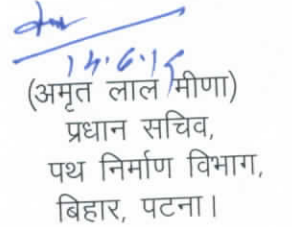 14.6.15
(अमृत लाल मीणा)
प्रधान सचिव,
पथ निर्माण विभाग,
बिहार, पटना।